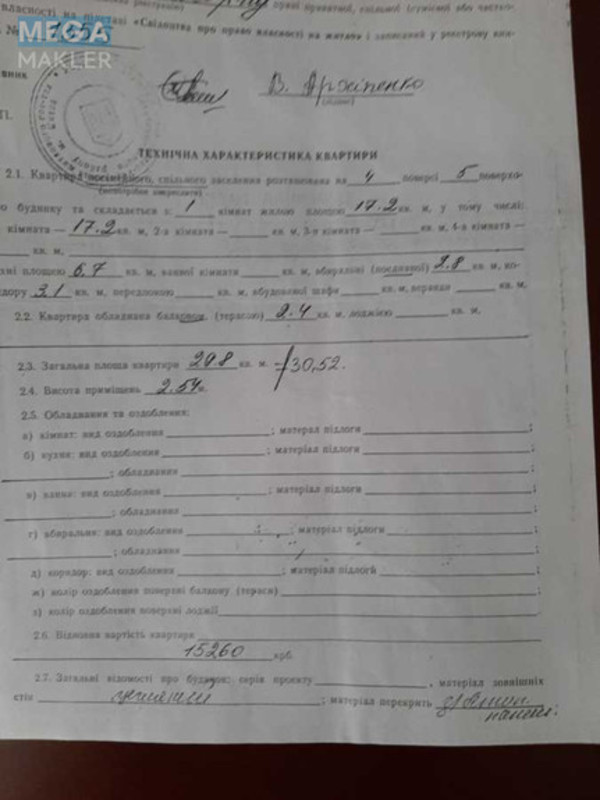 власності на підставі «Свідоцтва про право власності на житло» і записаний у реєстрову кни-
MEGA
MAKLER
В. Архіпенко
ТЕХНІЧНА ХАРАКТЕРИСТИКА КВАРТИРИ
2.1. Квартира посімейного, спільного заселення розташована на 4 поверсі 5 поверхо-
(непотрібне закреслити)
го будинку та складається з: 1 кімнат жилою площею 17.2 кв. м, у тому числі:
кімната — 17.2 кв. м, 2-а кімната — кв. м, 3-я кімната — кв. м, 4-а кімната —
кв. м,
хні площею 6.7 кв. м, ванної кімнати кв. м, вбиральні (поєднаної) 2.8 кв. м, ко-
идору 3.1 кв. м, передпокою кв. м, вбудованої шафи кв. м, веранди кв. м.
2.2. Квартира обладнана балконом, (терасою) 2.4 кв. м, лоджією кв. м,
2.3. Загальна площа квартири 29.8 кв. м. 30,52.
2.4. Висота приміщень 2.54 м.
2.5. Обладнання та оздоблення:
а) кімнат: вид оздоблення ; матеріал підлоги ;
б) кухня: вид оздоблення ; матеріал підлоги
; обладнання ;
в) ванна: вид оздоблення ; матеріал підлоги ;
; обладнання ;
г) вбиральня: вид оздоблення ; матеріал підлоги ;
; обладнання ;
д) коридор: вид оздоблення ; матеріал підлоги ;
ж) колір оздоблення поверхні балкону (тераси) ;
з) колір оздоблення поверхні лоджії ;
2.6. Відновна вартість квартири
15260 крб.
2.7. Загальні відомості про будинок: серія проекту , матеріал зовнішніх
стін цегляний ; матеріал перекрить